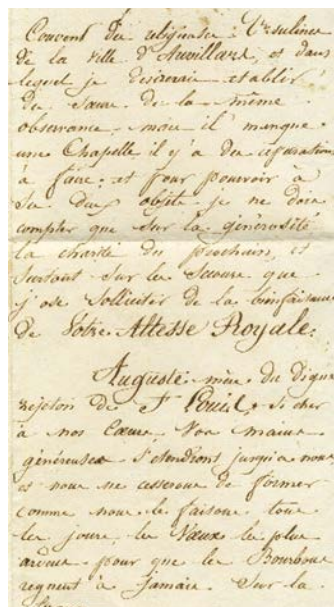 Couvent des religieuses Ursulines
de la ville d'Auvillars, et dans
lequel je desirerais etablir
des Sœurs de la même
observance. mais il manque
une Chapelle il y a des reparations
à faire. et pour pourvoir à
ces deux objets je ne dois
compter que sur la générosité
la charité du prochain, et
surtout sur les Secours que
j'ose Solliciter de la bienfaisance
de Votre Altesse Royale.
Auguste mère du Digne
rejeton de St Louis, si cher
à nos Cœurs. Vos mains
généreuses S'etendront jusqu'a nous
et nous ne cesserons de former
comme nous le faisons tous
les jours, les Vœux les plus
ardens pour que les Bourbons
regnent à jamais Sur la